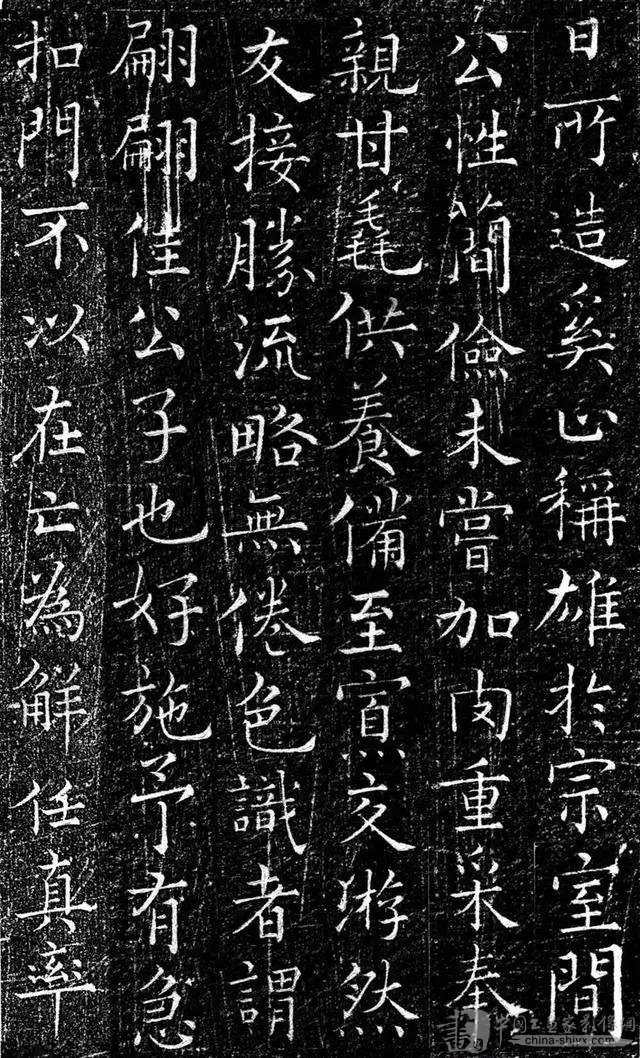 日所造奚止稱雄於宗室間
公性簡儉未嘗加肉重采奉
親甘毳供養備至寡交游然
友接勝流略無倦色識者謂
翩翩佳公子也好施予有急
扣門不以在亡為解任真率
www.china-shiyx.com